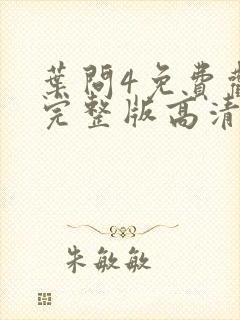 葉問4免費
完整版高清
朱敏敏